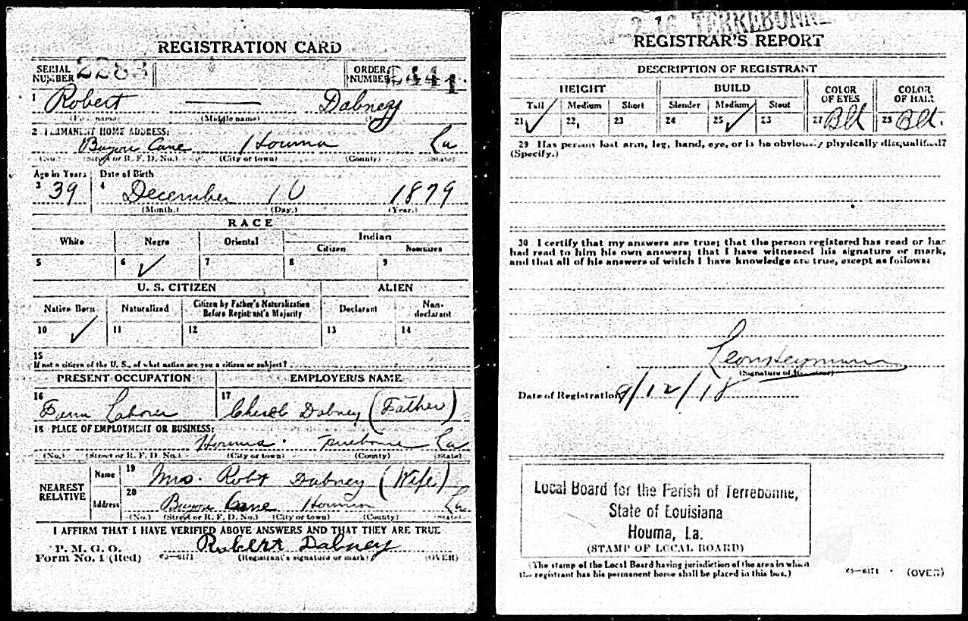 REGISTRATION CARD
SERIAL NUMBER 2283
ORDER NUMBER 2441
1 Robert — Dabney
(First name) (Middle name)
2 PERMANENT HOME ADDRESS:
Bayou Cane Houma La
(No.) (Street or R. F. D. No.) (City or town) (County) (State)
Age in Years Date of Birth
3 39 4 December 10 1879
(Month.) (Day.) (Year.)
RACE
White Negro Oriental Indian
Citizen Noncitizen
5 6 ✓ 7 8 9
U. S. CITIZEN ALIEN
Native Born Naturalized Citizen by Father's Naturalization Before Registrant's Majority Declarant Non-declarant
10 ✓ 11 12 13 14
15
If not a citizen of the U. S., of what nation are you a citizen or subject?
PRESENT OCCUPATION EMPLOYER'S NAME
16 Farm Laborer 17 Dabney (Father)
18 PLACE OF EMPLOYMENT OR BUSINESS:
Houma La
(No.) (Street or R. F. D. No.) (City or town) (County) (State)
NEAREST RELATIVE
Name 19 Mrs. Robt Dabney (Wife)
Address 20 Bayou Cane Houma La
(No.) (Street or R. F. D. No.) (City or town) (County) (State)
I AFFIRM THAT I HAVE VERIFIED ABOVE ANSWERS AND THAT THEY ARE TRUE
P. M. G. O.
Form No. 1 (Red) Robert Dabney
(Registrant's signature or mark) (OVER)
TERREBONNE
REGISTRAR'S REPORT
DESCRIPTION OF REGISTRANT
HEIGHT BUILD COLOR OF EYES COLOR OF HAIR
Tall Medium Short Slender Medium Stout
21 ✓ 22 23 24 25 ✓ 26 27 Blk 28 Blk.
29 Has person lost arm, leg, hand, eye, or is he obviously physically disqualified?
(Specify.)
30 I certify that my answers are true; that the person registered has read or has
had read to him his own answers; that I have witnessed his signature or mark,
and that all of his answers of which I have knowledge are true, except as follows:
(Signature of Registrar)
Date of Registration 9/12/18
Local Board for the Parish of Terrebonne,
State of Louisiana
Houma, La.
(STAMP OF LOCAL BOARD)
(The stamp of the Local Board having jurisdiction of the area in which
the registrant has his permanent home shall be placed in this box.)
(OVER)